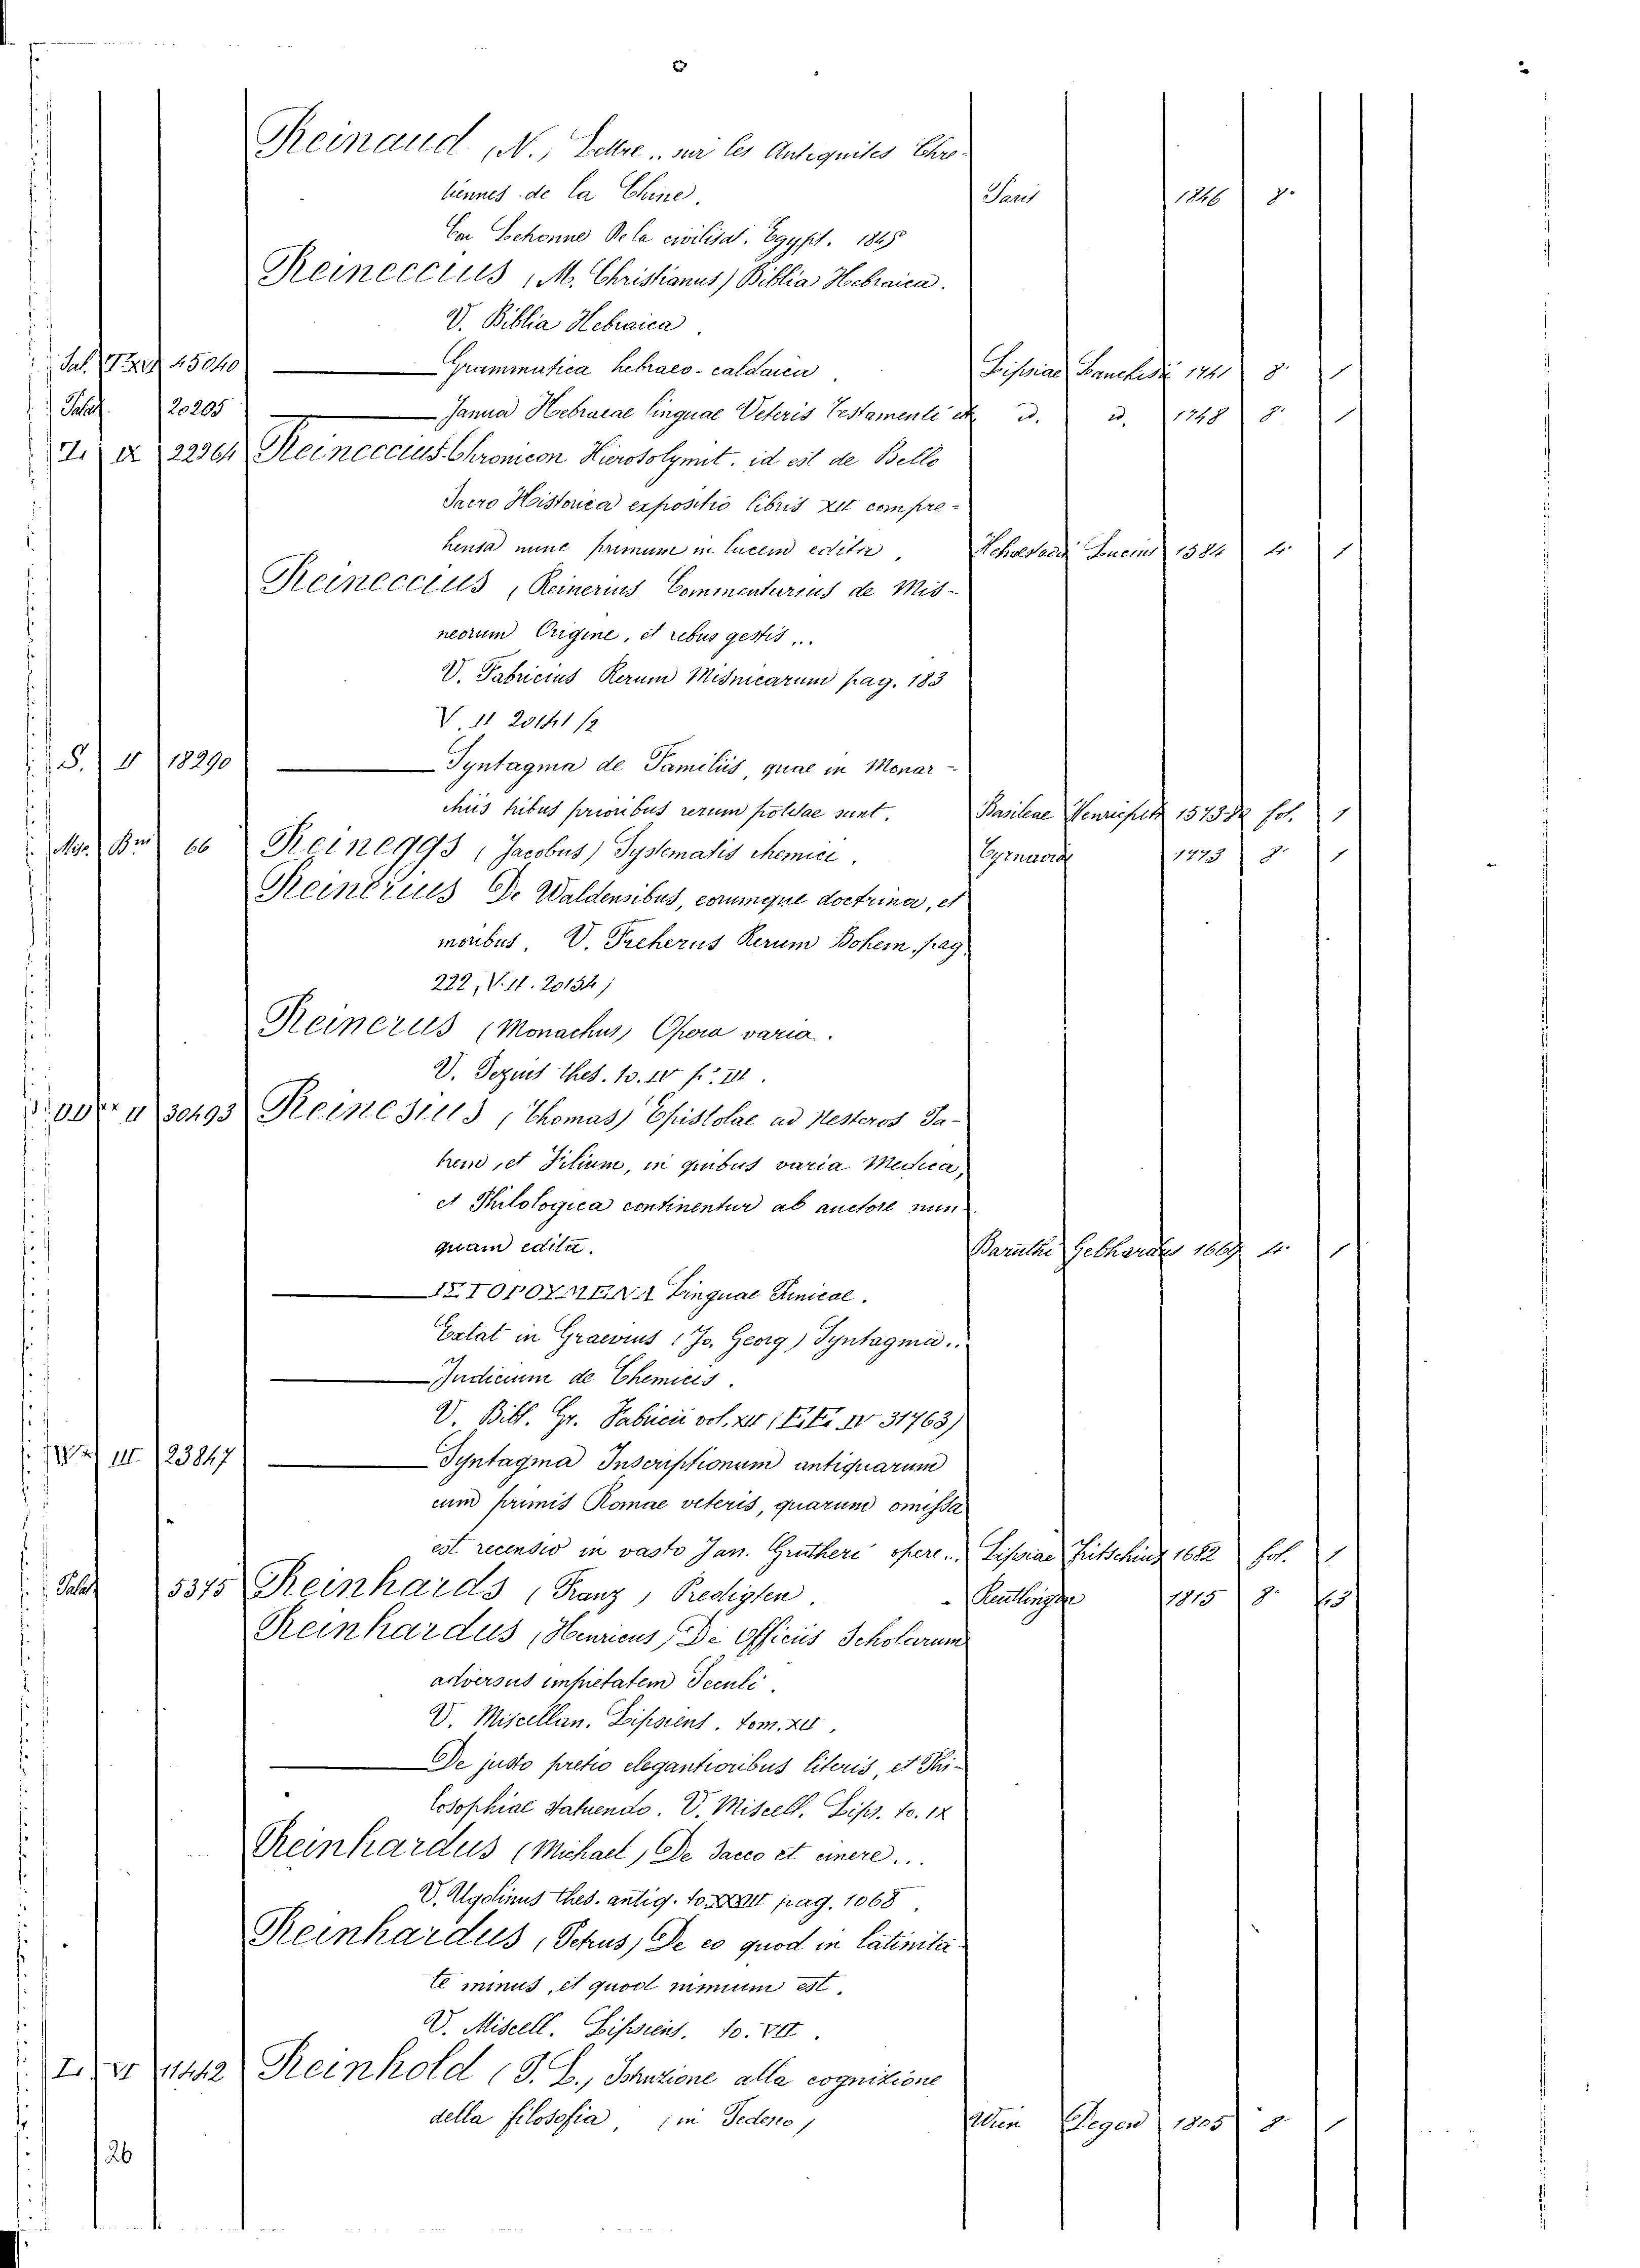 Reinaud (N., Lettre .. sur les Antiquités Chre-
tiennes de la Chine. Paris 1846 8°
Con Lchonne De la civilisat. Egypt. 1845
Reineccius (M. Christianus) Biblia Hebraica.
V. Biblia Hebraica.
Sal. 45040 Grammatica hebraeo-caldaica. Lipsiae 1741 8° 1
Salet. 20205 Janua Hebraeae linguae Veteris Testamenti et d. d. 1748 8° 1
I. 22364 Reineccius Chronicon Hierosolymit. id est de Bello
Sacro Historica expositio libris XII compre-
hensa nunc primum in lucem edita, Lucius 1584 4° 1
Reineccius, Reinerius Commentarius de Mis-
neorum Origine, et rebus gestis...
V. Fabricius Rerum Misnicarum pag. 183
V. II 20141 1/2
S. II 18290 Syntagma de Familiis, quae in Monar-
chiis tribus prioribus rerum politae sunt. Basileae fol. 1
66 Reineggs (Jacobus) Systematis chemici. Tyrnaviae 1773 8° 1
Reinerius De Waldensibus, eorumque doctrina, et
moribus. V. Freherus Rerum Bohem. pag.
222, V. II. 20134)
Reinerus (Monachus) Opera varia.
V. Pezius thes. to. IV p. III.
II 30493 Reinesius (Thomas) Epistolae ad Nesteros Pa-
trem, et Filium, in quibus varia Medica,
et Philologica continentur ab auctore nun-
quam edita. Baruthi Gebhardus 1669 4° 1
ΙΣΤΟΡΟΥΜΕΝΑ Linguae Punicae.
Extat in Graevius (Jo. Georg) Syntagma..
Judicium de Chemicis.
V. Bibl. Gr. Fabricii vol. XII 31763)
III 23847 Syntagma Inscriptionum antiquarum
cum primis Romae veteris, quarum omissa
est recensio in vasto Jan. Grutheri opere... Lipsiae Fritschius 1682 fol. 1
Salet 5375 Reinhards (Franz, Predigten. Reutlingen 1815 8°
Reinhardus (Henricus) De Officiis Scholarum
adversus impietatem Seculi.
V. Miscellan. Lipsiens. tom. XII,
De justo pretio elegantioribus literis, et Phi-
losophiae statuendo. V. Miscell. Lips. to. IX
Reinhardus (Michael) De sacco et cinere...
V. Ugolinus thes. antiq. to. XXIII pag. 1068.
Reinhardus (Petrus) De eo quod in latinita-
te minus, et quod nimium est.
V. Miscell. Lipsiens. to. VII.
I. VI 11442 Reinhold (S. L., Istruzione alla cognizione
della filosofia, (in Tedesco) Wien Degen 1805 8 1
26